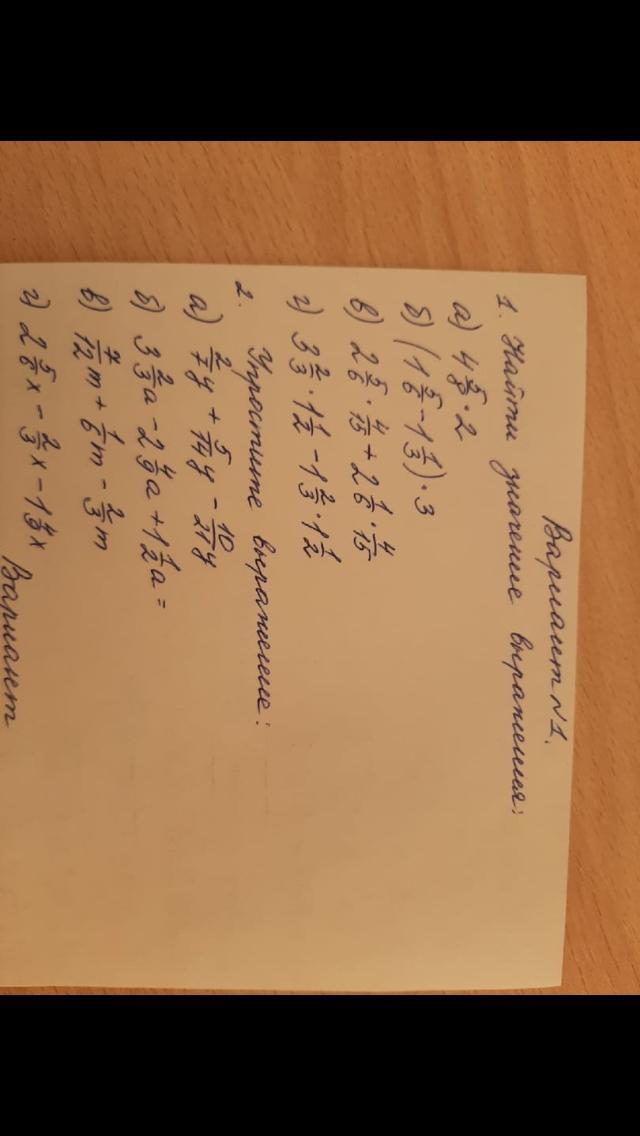 Вариант №1.
1. Найти значение выражения:
а) 4 5/9 · 2
б) (1 5/6 - 1 1/3) · 3
в) 2 5/6 · 4/15 + 2 1/6 · 4/15
г) 3 2/3 · 1 1/2 - 1 2/3 · 1 1/2
2. Упростите выражение:
а) 2/7 y + 5/14 y - 10/21 y
б) 3 2/3 a - 2 4/9 a + 1 1/2 a =
в) 7/12 m + 1/6 m - 2/3 m
г) 2 5/6 x - 2/3 x - 1 4/9 x
Вариант